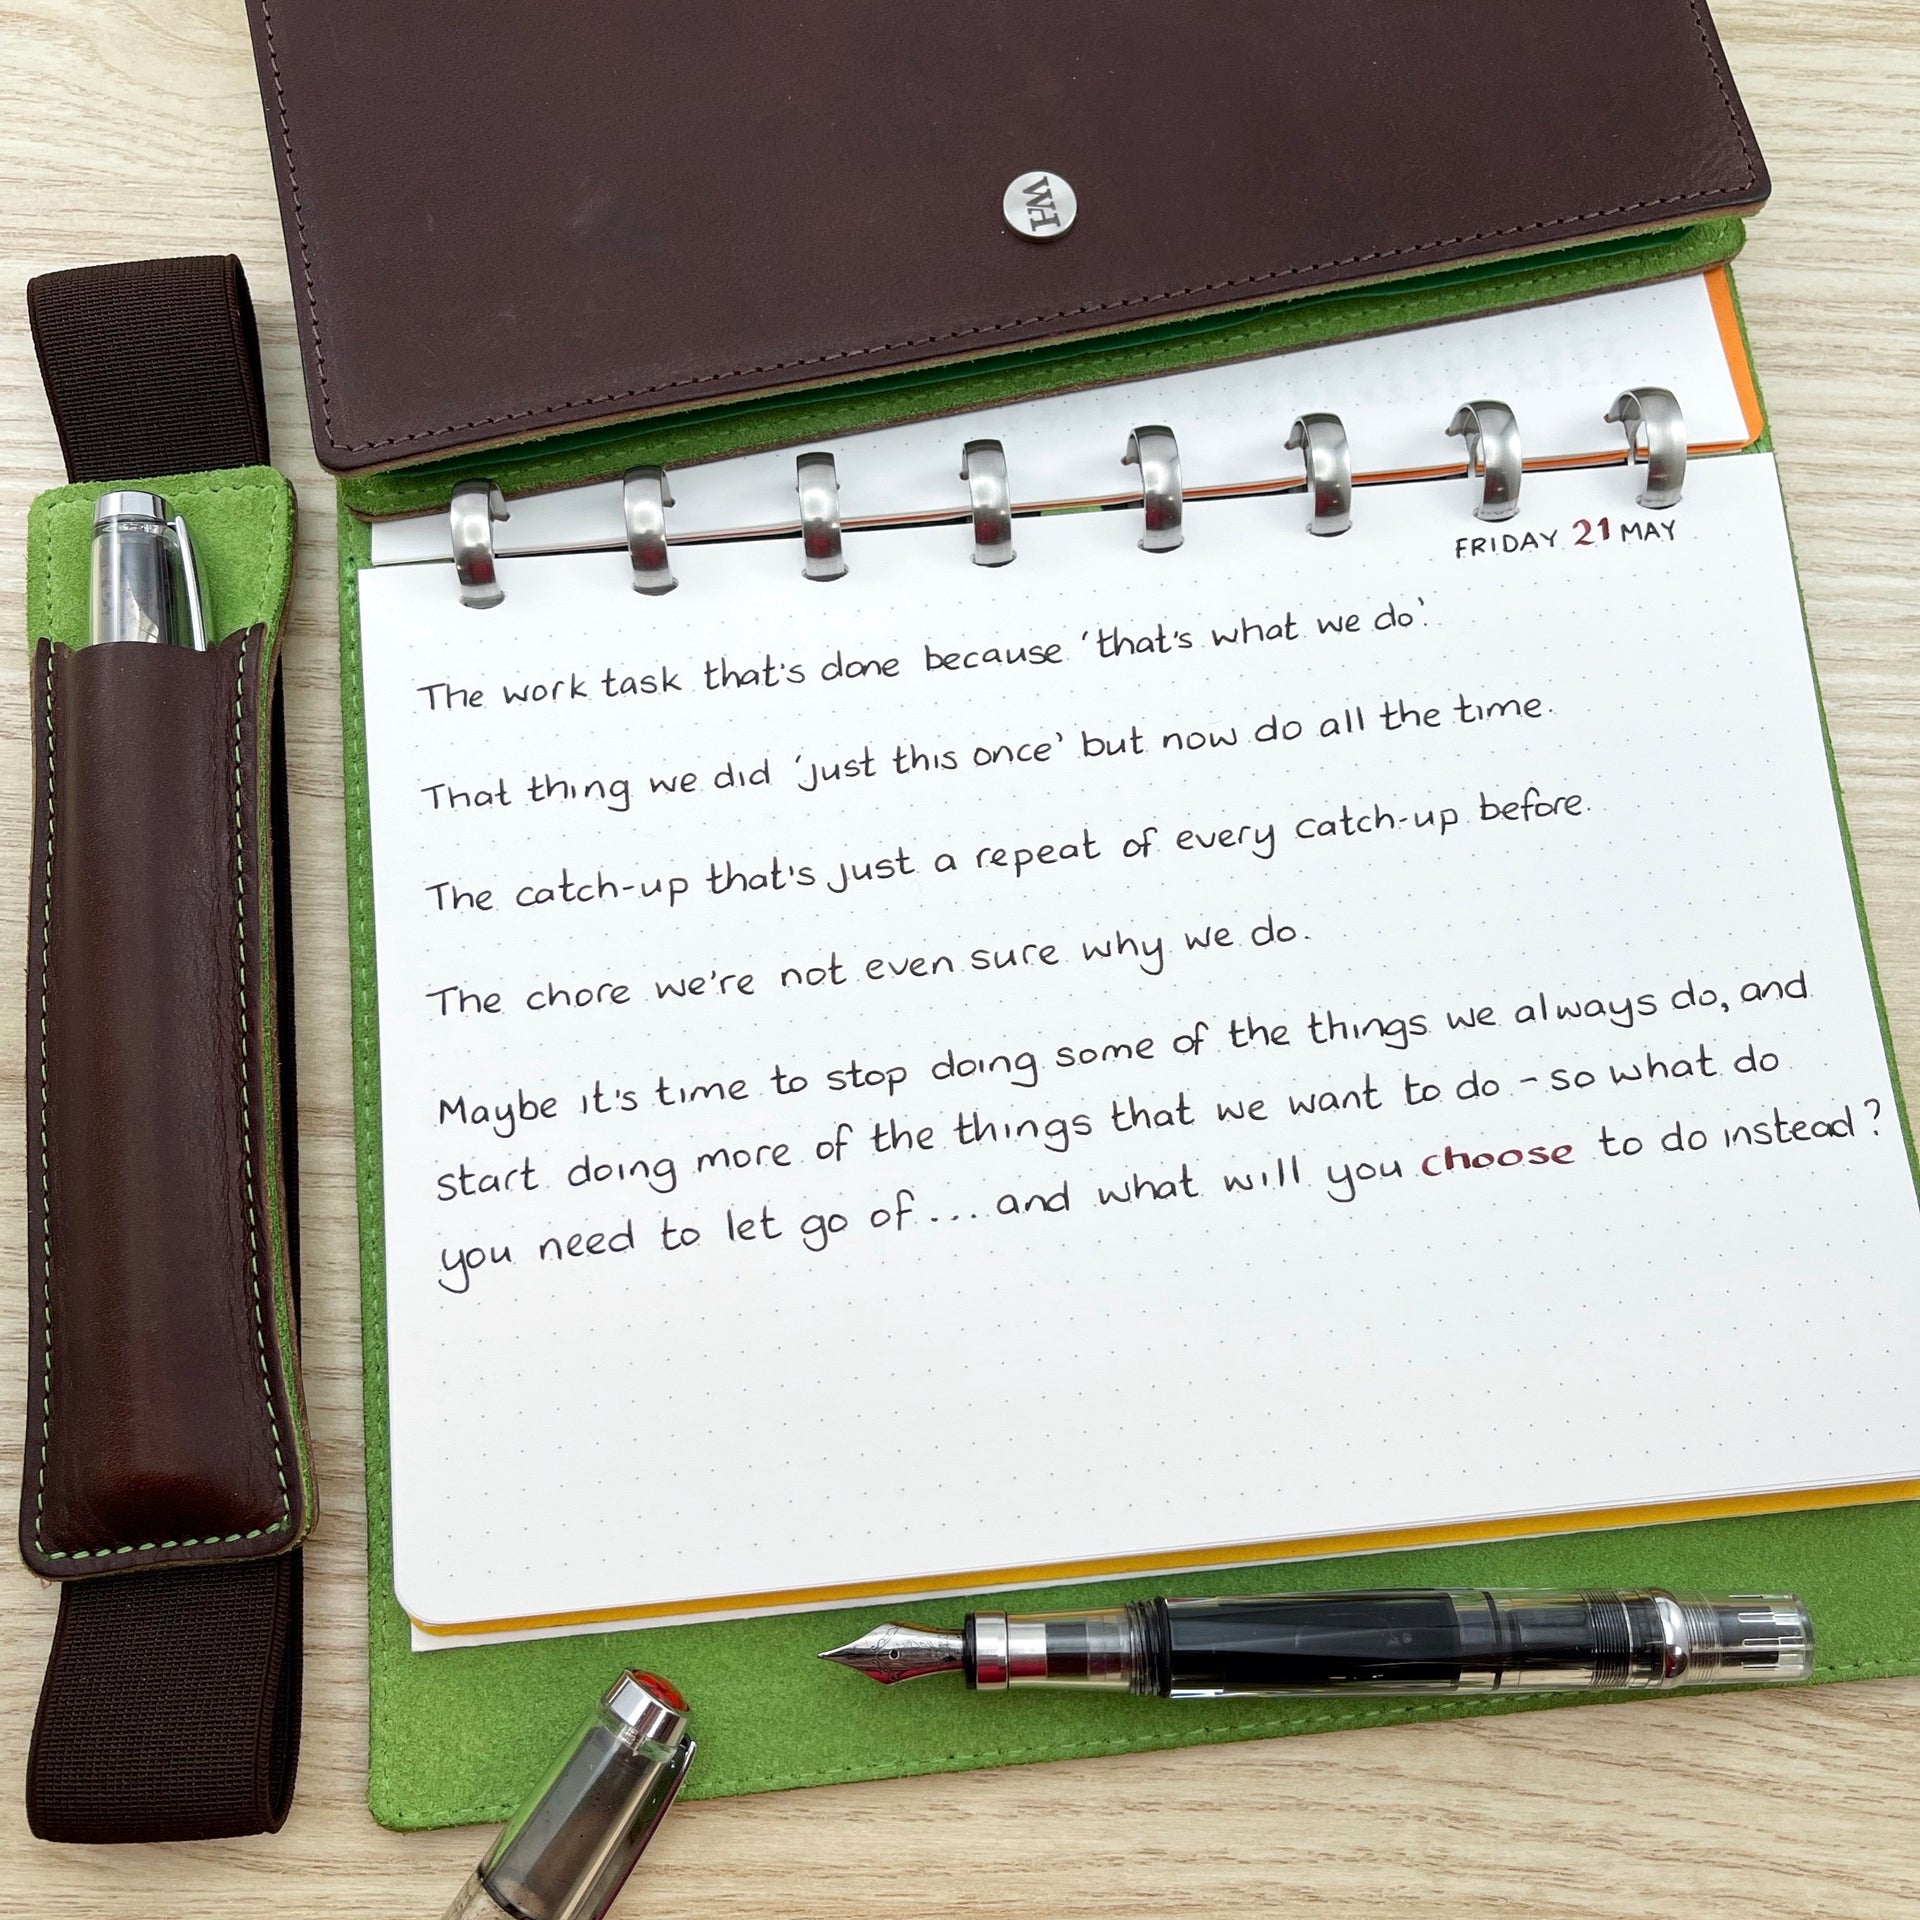 WH
FRIDAY 21 MAY
The work task that's done because 'that's what we do'.
That thing we did 'just this once' but now do all the time.
The catch-up that's just a repeat of every catch-up before.
The chore we're not even sure why we do.
Maybe it's time to stop doing some of the things we always do, and
start doing more of the things that we want to do - so what do
you need to let go of... and what will you choose to do instead?